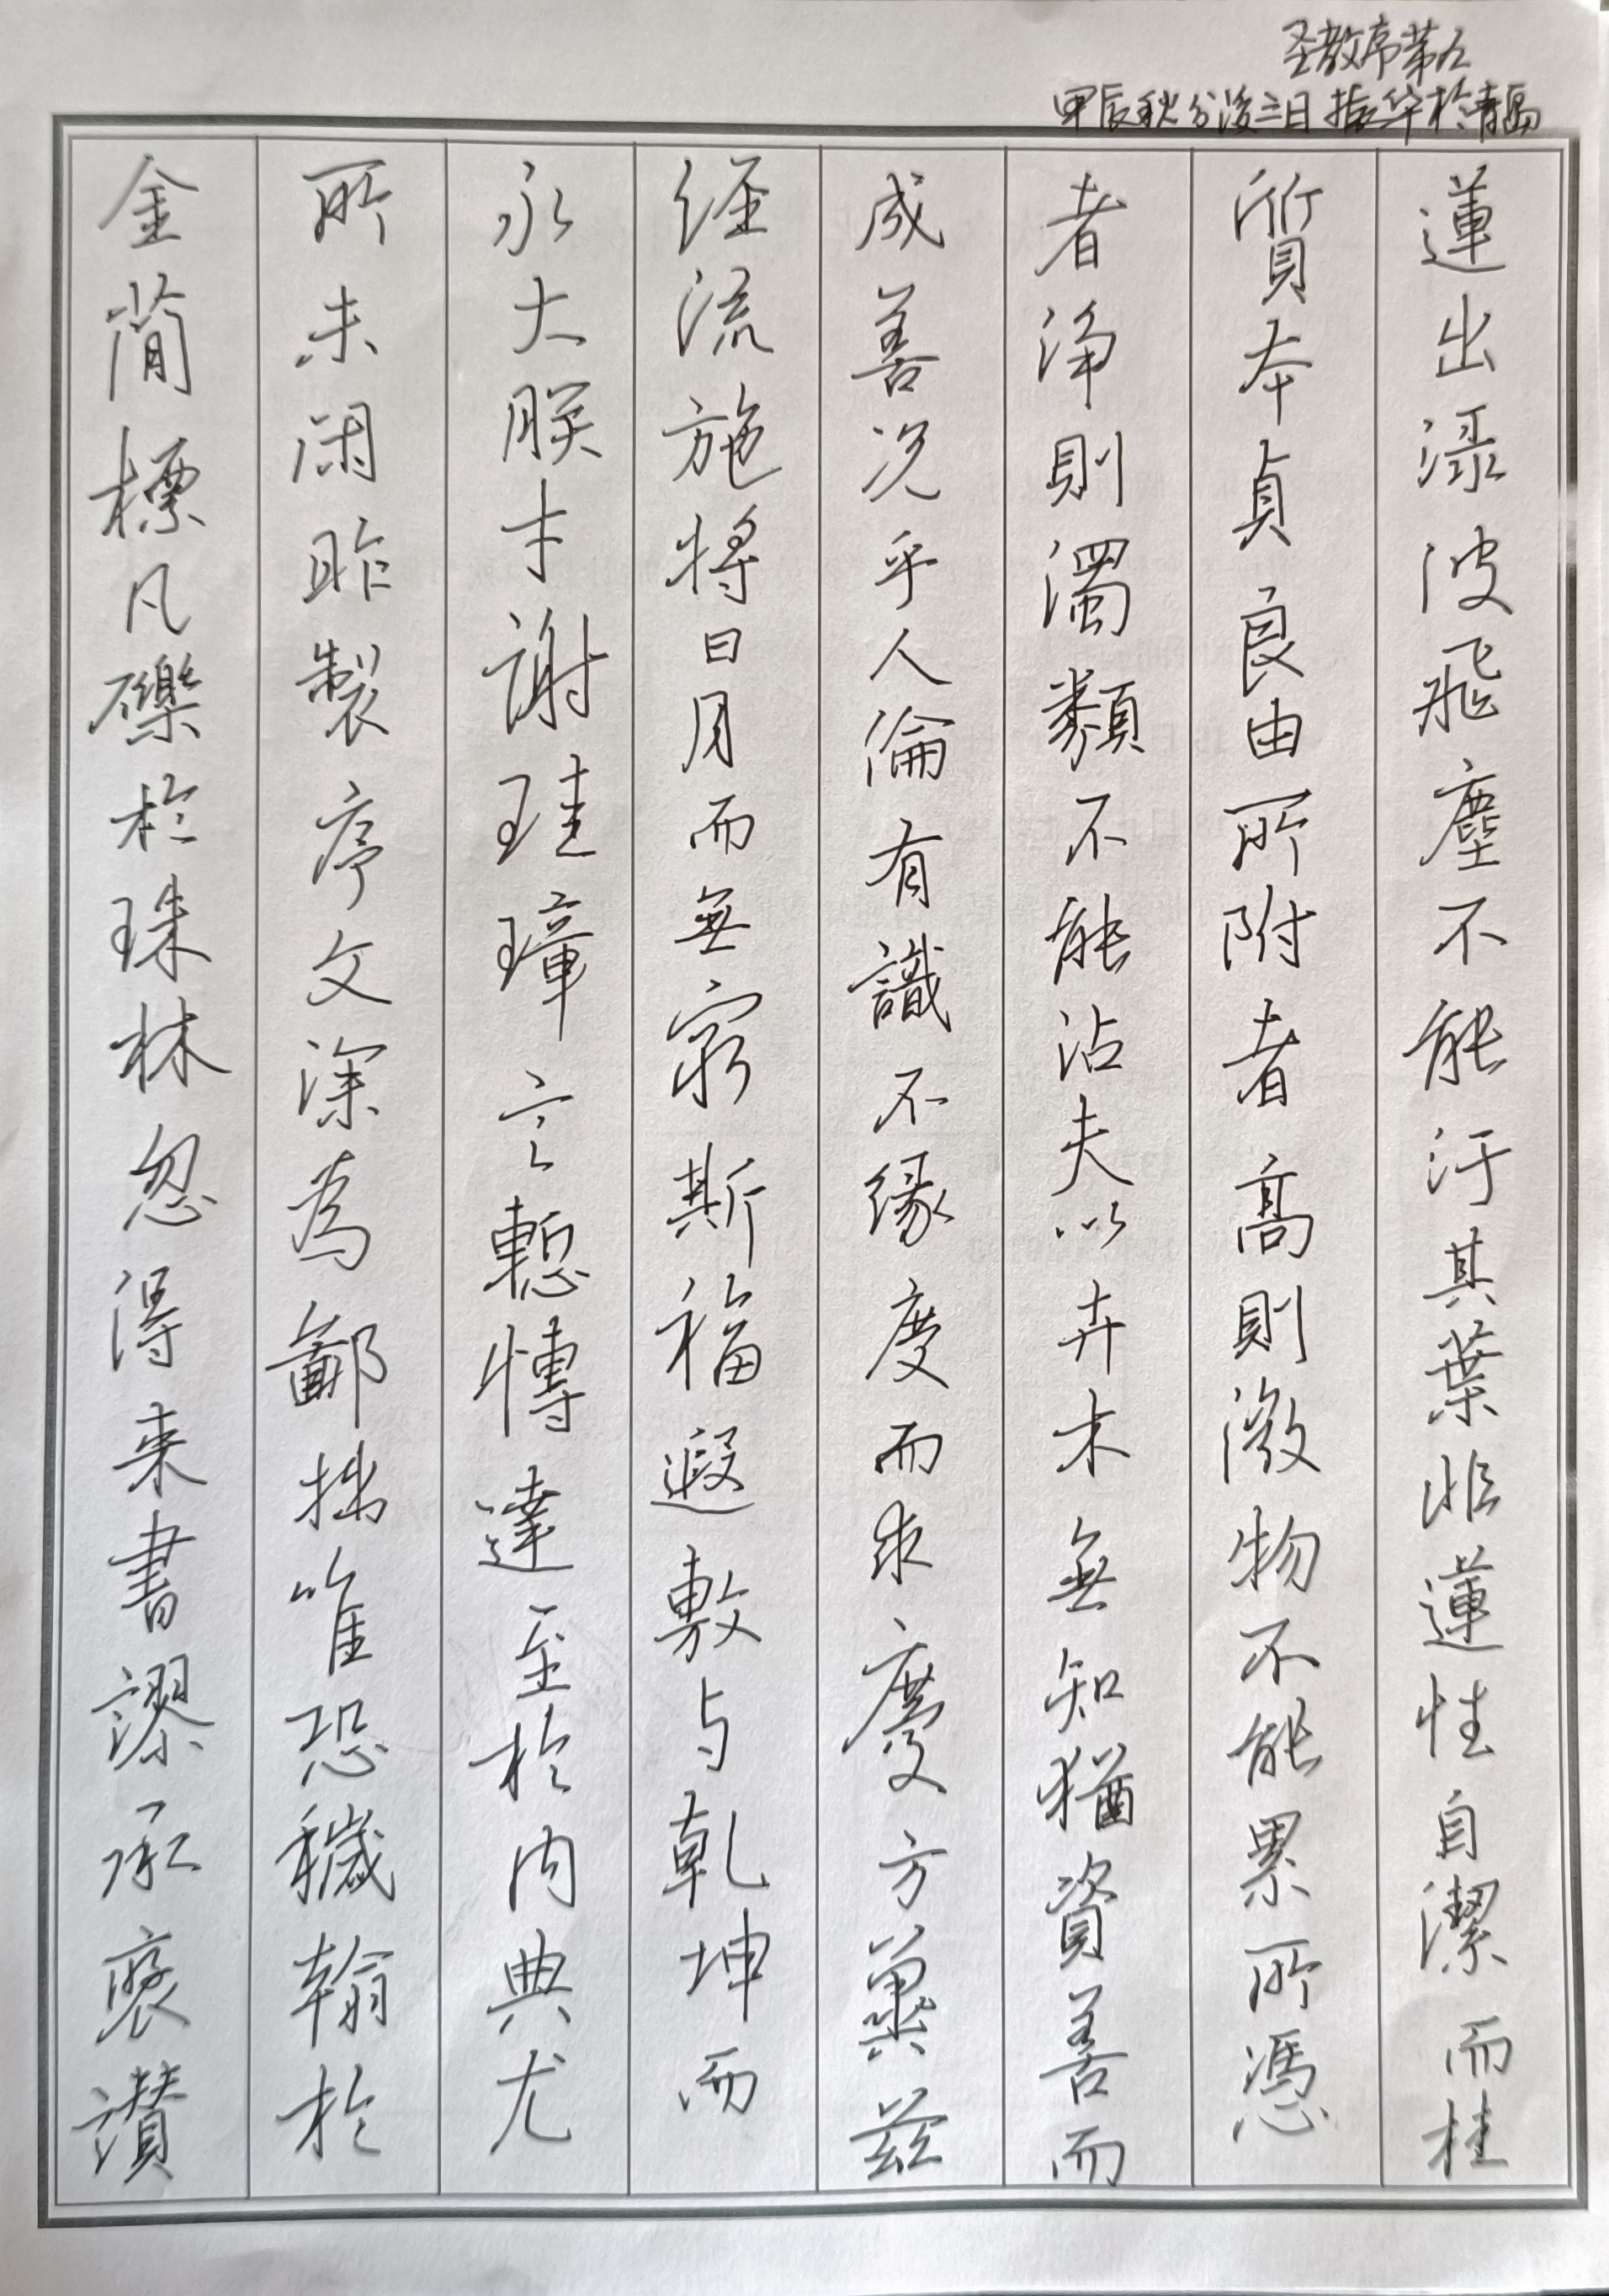 圣教序第五
甲辰秋分後三日 振华於青岛
蓮出渌波飛塵不能汙其葉非蓮性自潔而桂
質本貞良由所附者高則微物不能累所憑
者淨則濁類不能沾夫以卉木無知猶資善而
成善况乎人倫有識不緣慶而求慶方冀茲
经流施將日月而無窮斯福遐敷与乾坤而
永大朕才謝珪璋言慙博達至於内典尤
所未閑昨製序文深為鄙拙唯恐穢翰於
金簡標凡礫於珠林忽得来書謬承褒讃